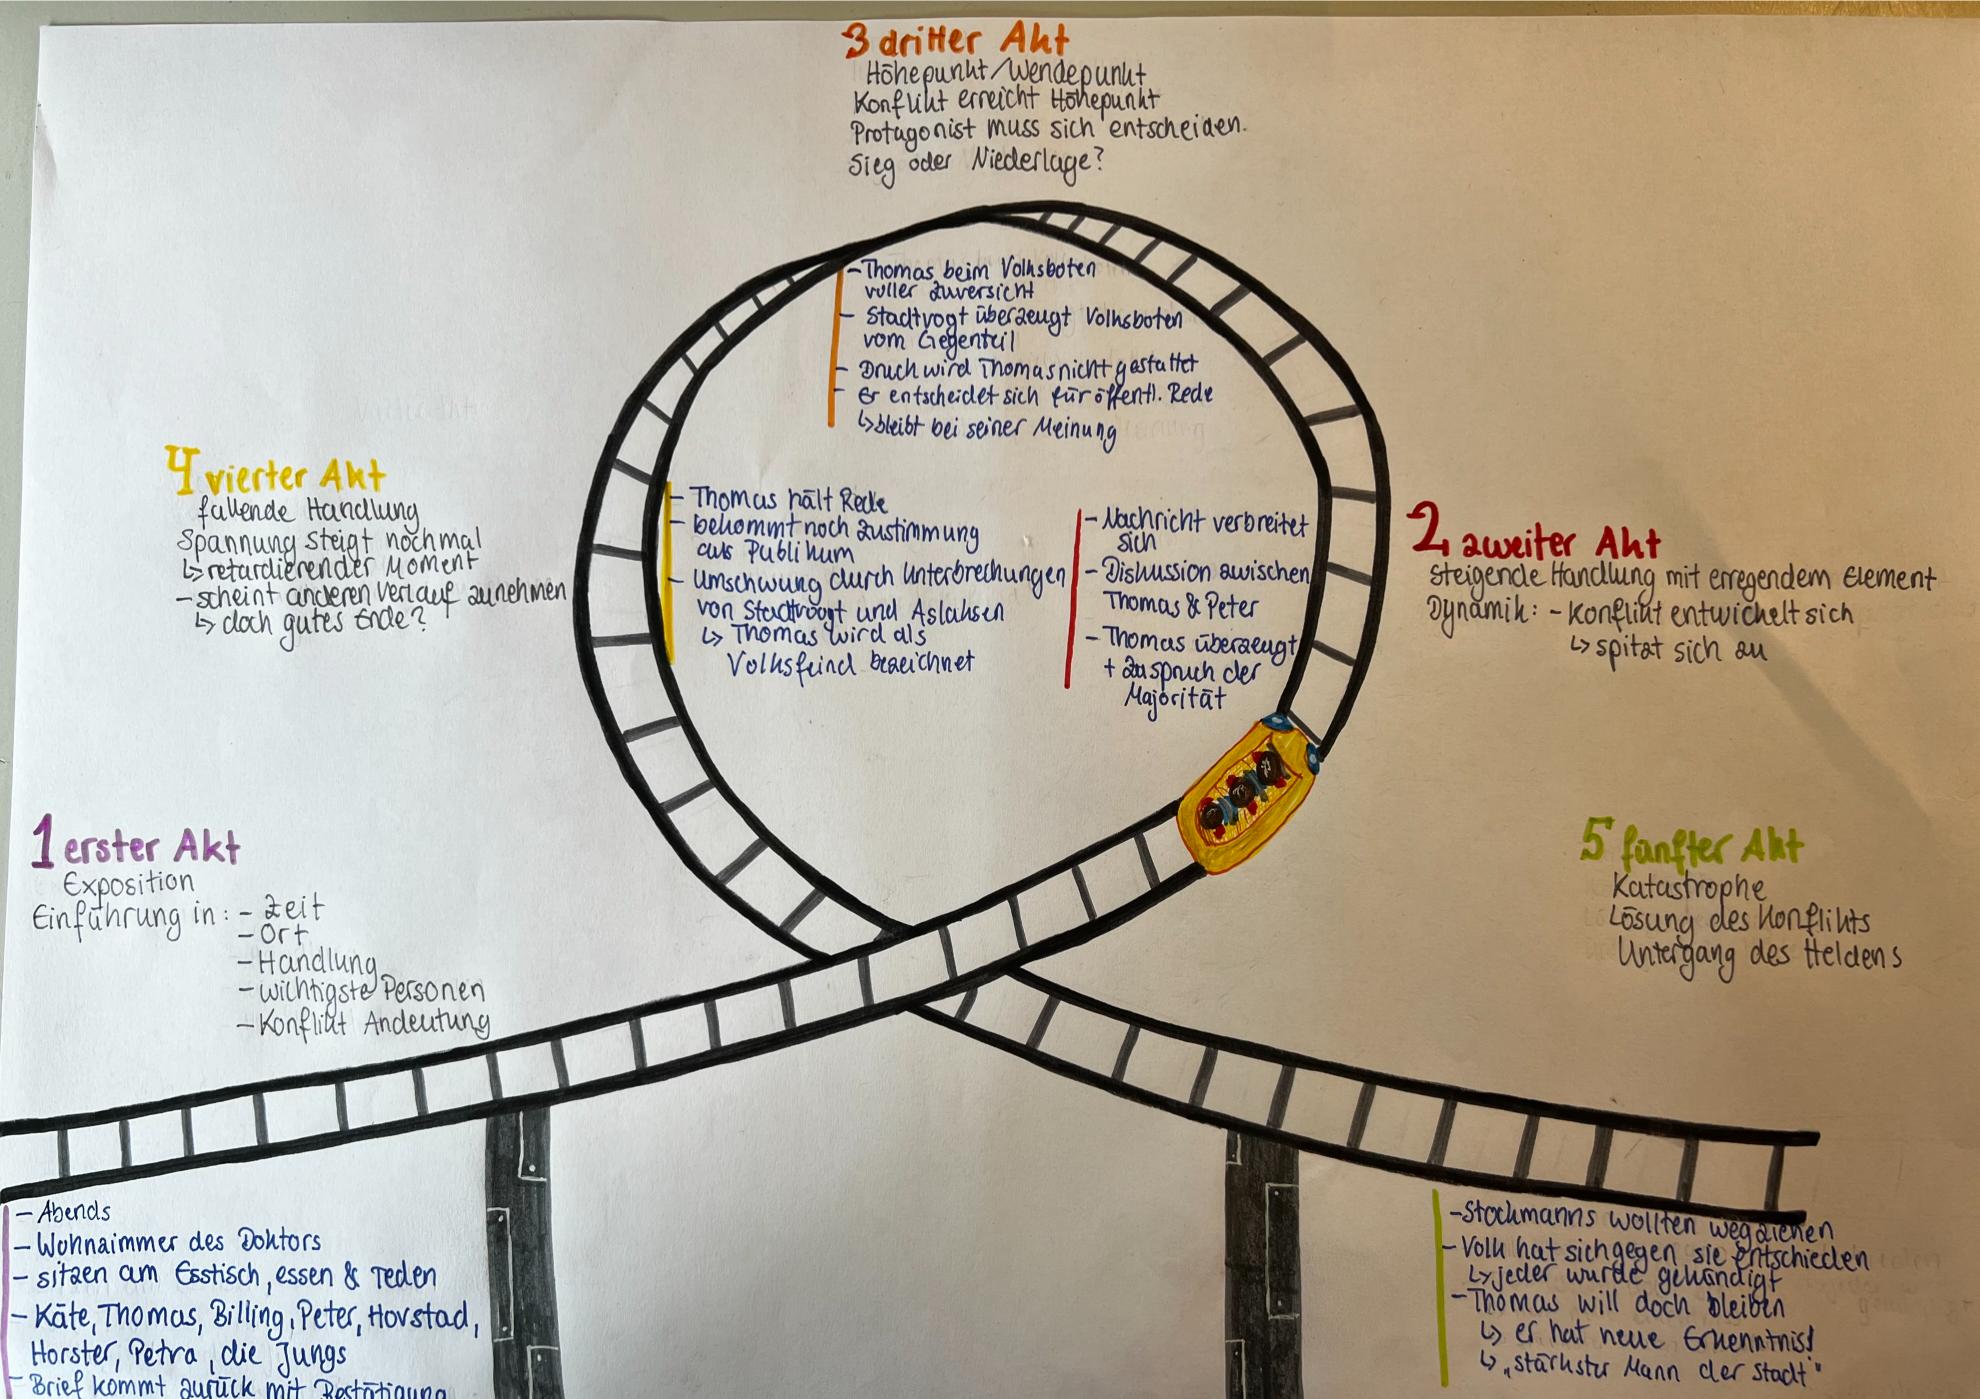 3 dritter Akt
Höhepunkt/Wendepunkt
Konflikt erreicht Höhepunkt
Protagonist muss sich entscheiden.
Sieg oder Niederlage?
- Thomas beim Volksboten
voller Zuversicht
- Stadtvogt überzeugt Volksboten
vom Gegenteil
- Druck wird Thomas nicht gestattet
- Er entscheidet sich für öffentl. Rede
↳ bleibt bei seiner Meinung
4 vierter Akt
fallende Handlung
Spannung steigt nochmal
↳ retardierender Moment
- scheint anderen Verlauf zunehmen
↳ doch gutes Ende?
- Thomas hält Rede
- bekommt noch Zustimmung
aus Publikum
- Umschwung durch Unterbrechungen
von Stadtvogt und Aslaksen
↳ Thomas wird als
Volksfeind bezeichnet
- Nachricht verbreitet
sich
- Diskussion zwischen
Thomas & Peter
- Thomas überzeugt
+ Zuspruch der
Majorität
2 zweiter Akt
Steigende Handlung mit erregendem Element
Dynamik: - Konflikt entwickelt sich
↳ spitzt sich zu
1 erster Akt
Exposition
Einführung in: - Zeit
- Ort
- Handlung
- wichtigste Personen
- Konflikt Andeutung
5 fünfter Akt
Katastrophe
Lösung des Konflikts
Untergang des Heldens
- Abends
- Wohnzimmer des Doktors
- sitzen am Esstisch, essen & reden
- Käte, Thomas, Billing, Peter, Hovstad,
Horster, Petra, die Jungs
- Brief kommt zurück mit Bestätigung
- Stockmanns wollten wegziehen
- Volk hat sich gegen sie entschieden
↳ jeder wurde gekündigt
- Thomas will doch bleiben
↳ er hat neue Erkenntnis!
↳ „stärkster Mann der Stadt"